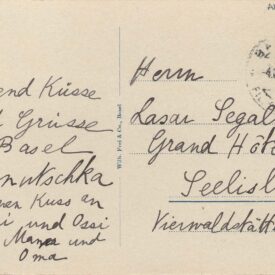 end Küsse
Grüsse
Basel
nutschka
en Kuss an
i und Ossi
Mama und
Oma
Wilh. Frei & Co., Basel
Herrn
Lasar Segal
Grand Hôt
Seelisb
Vierwaldstätt